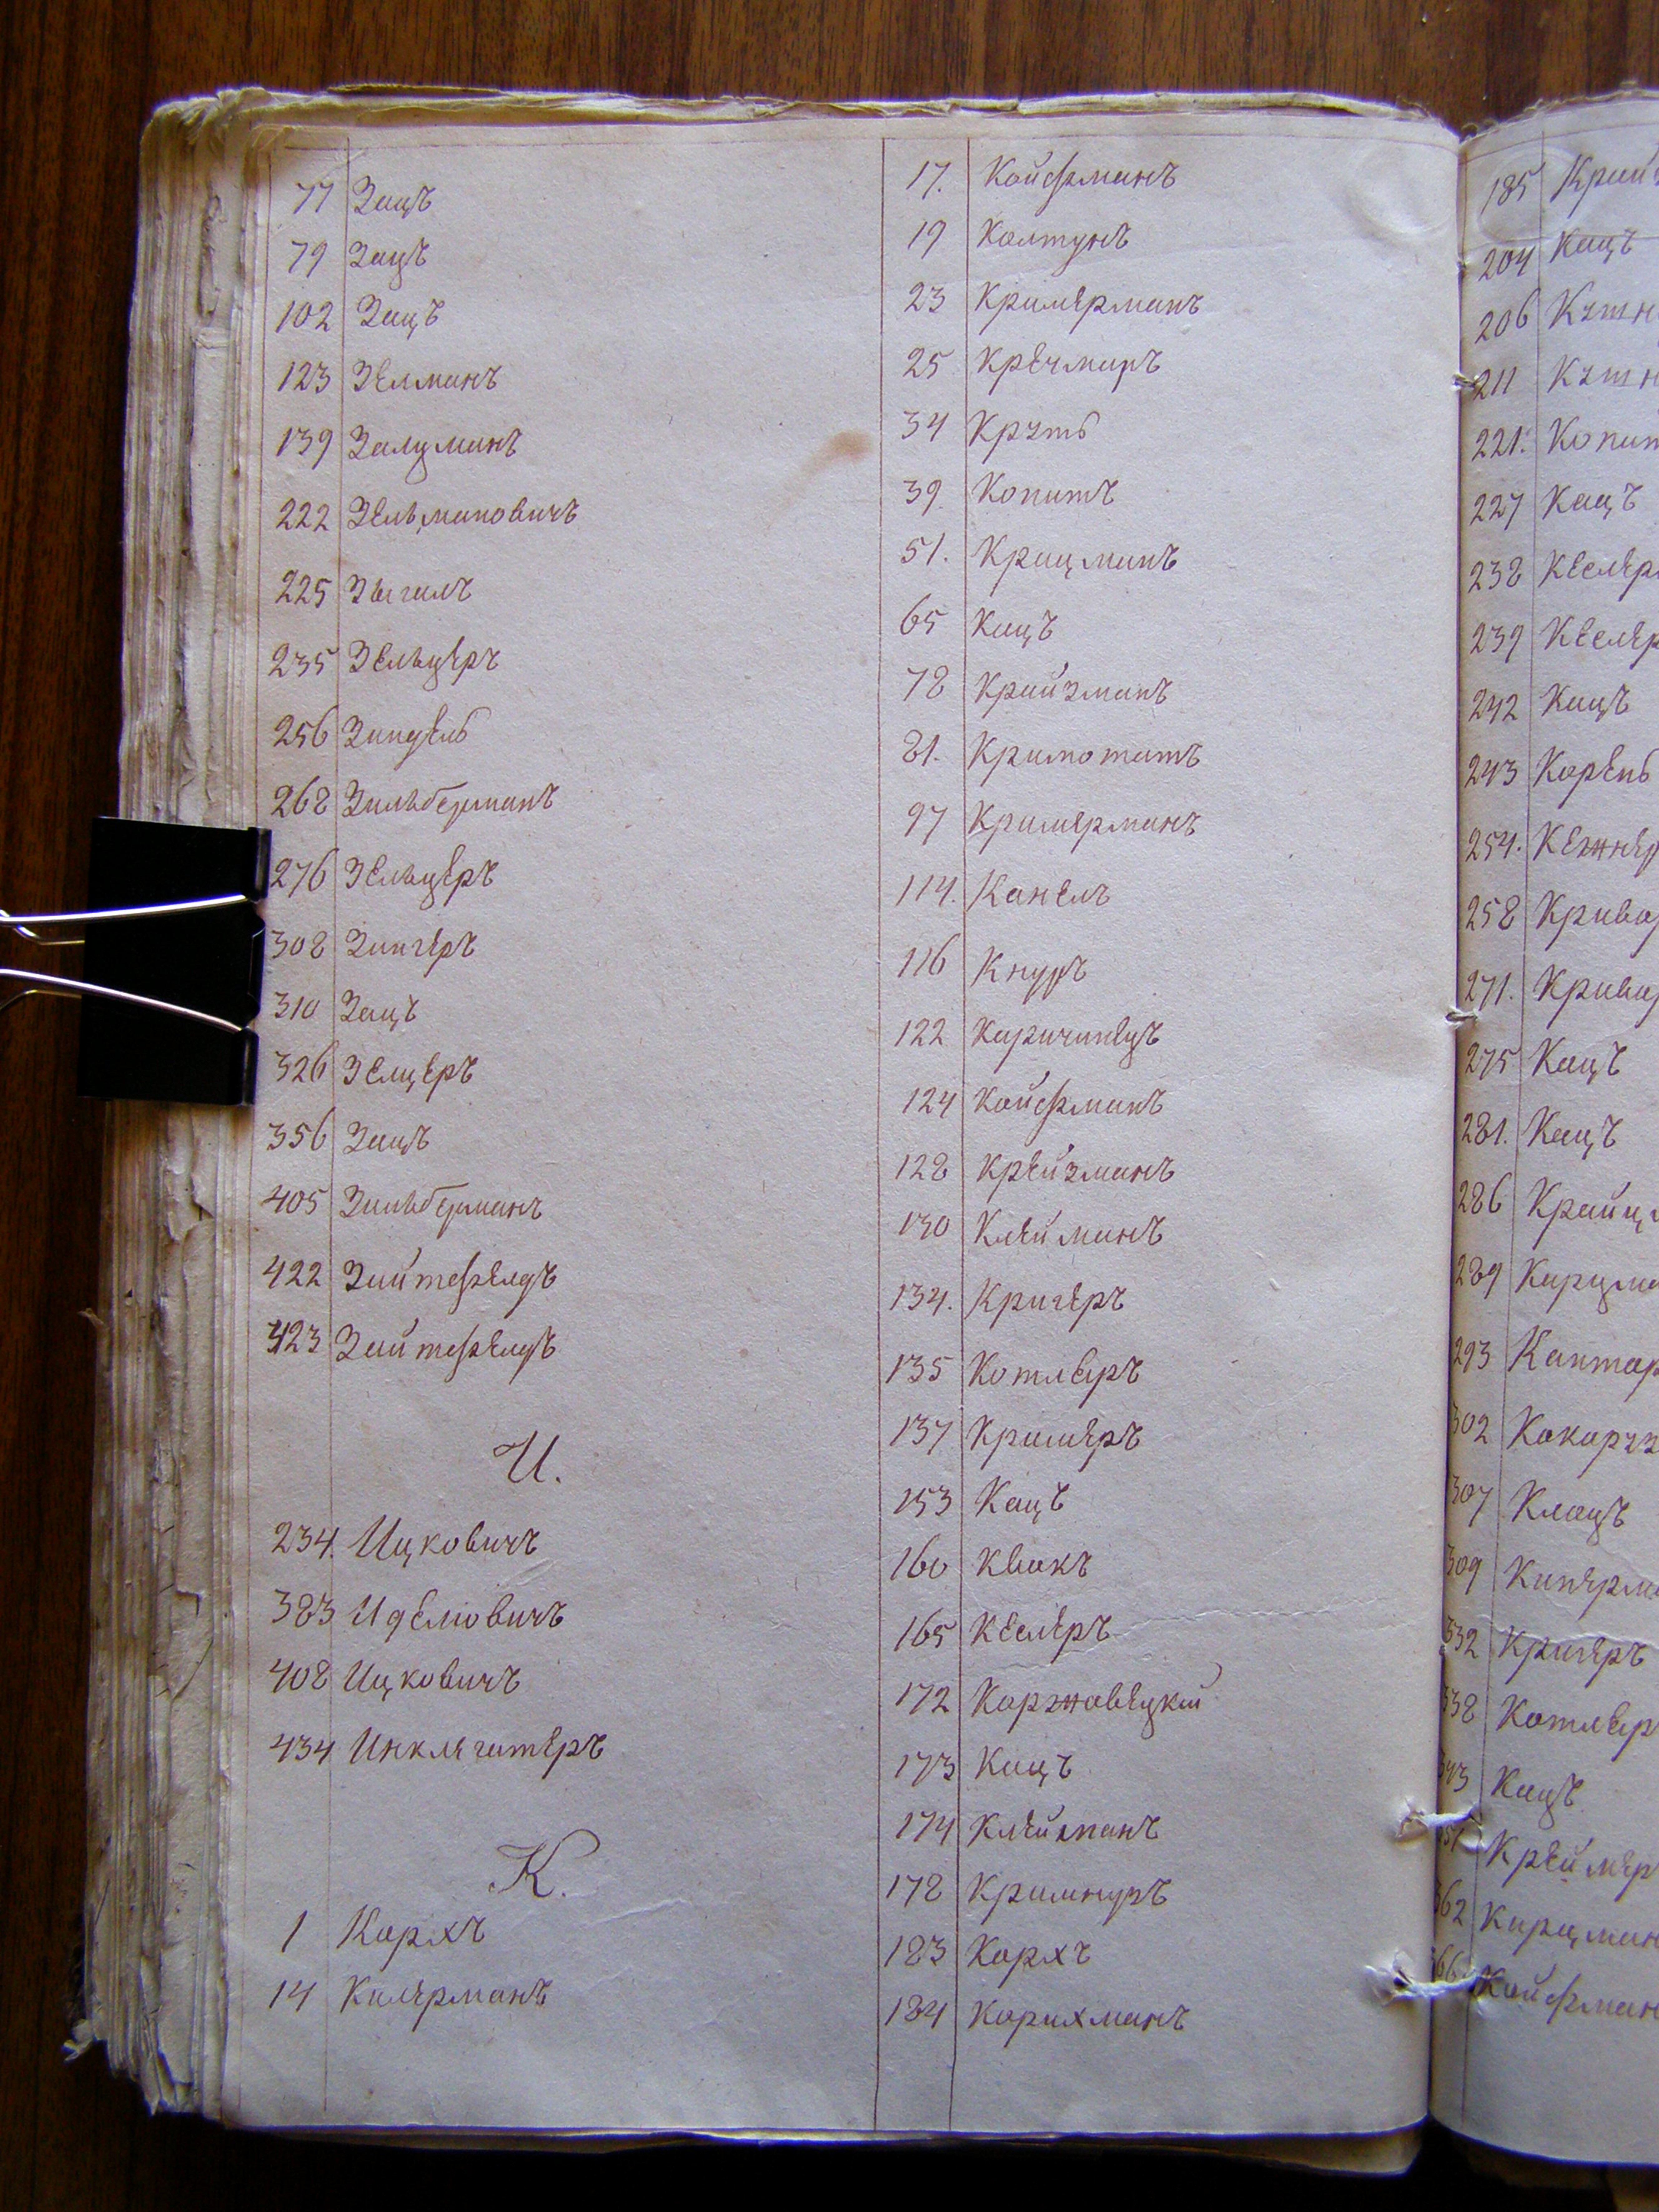 77 Зацъ
79 Зацъ
102 Зацъ
123 Зелманъ
139 Залцманъ
222 Зельмановичъ
225 Зыгалъ
235 Зельцеръ
256 Зиндель
268 Зильберманъ
276 Зельцеръ
308 Зингеръ
310 Зацъ
326 Зелцеръ
356 Зацъ
405 Зильберманъ
422 Зайтефелдъ
423 Зайтефелдъ
И.
234. Ицковичъ
383 Иделювичъ
408 Ицковичъ
434 Инклегатеръ
К.
1 Кархъ
14 Килерманъ
17. Койфманъ
19 Колтунъ
23 Кримерманъ
25 Кречмаръ
34 Круть
39. Копитъ
51. Крицманъ
65 Кацъ
78 Крайзманъ
81.
97 Кримерманъ
114. Канелъ
116 Кнуръ
122 Каричинецъ
124 Койфманъ
128 Крейзманъ
130 Клейманъ
134. Кригеръ
135 Котляръ
137 Кримеръ
153 Кацъ
160 Квакъ
165 Кеслеръ
172 Коржовецкій
173 Кацъ
174 Клейманъ
178
183 Кархъ
184 Карихманъ
185 Край
204 Кацъ
206 Кутн
211 Кутн
221. Копит
227 Кацъ
238 Кеслер
239 Кеслер
242 Кацъ
243 Корень
254. Кежнер
258 Кривор
271. Кривор
275 Кацъ
281. Кацъ
286 Крайц
289 Карцма
293 Кантар
302
307 Клацъ
309 Киперма
332 Кригеръ
338 Котляр
343 Кацъ
Креймер
362 Карцман
Койфман